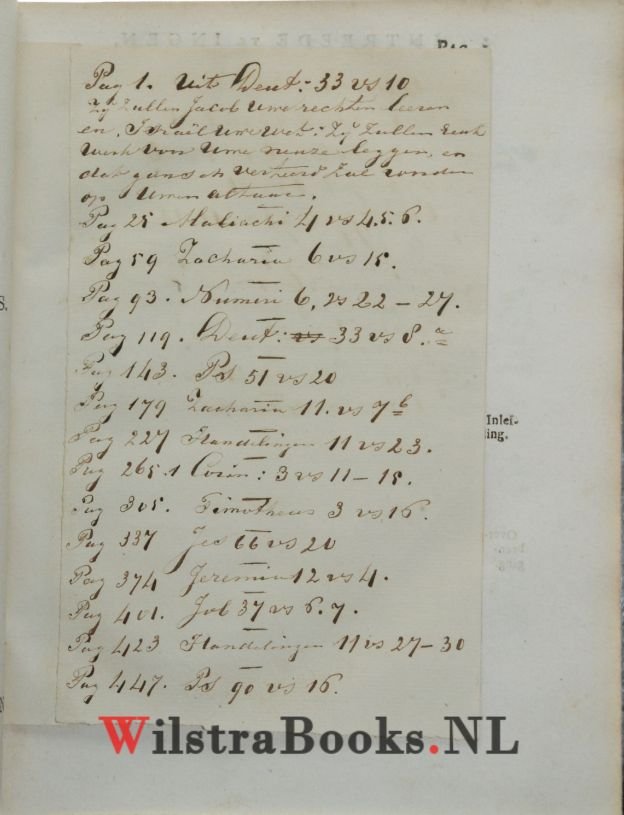 Pag 1. Uit Deut: 33 vs 10
Zij zullen Jacob Uwe rechten leeren
en, Israël Uwe Wet: Zij zullen reuk
werk voor Uwe neuze leggen, en
dat gansch verteerd zal worden
op Uwen altaar.
Pag 25 Maliachi 4 vs 4.5.6.
Pag 59 Zacharia 6 vs 15.
Pag 93. Numeri 6, vs 22 – 27.
Pag 119. Deut: vs 33 vs 8. a
Pag 143. Ps 51 vs 20
Pag 179 Zacharia 11. vs 7 b
Pag 227 Handelingen 11 vs 23.
Pag 265. 1 Corin: 3 vs 11 – 15.
Pag 305. Timotheus 3 vs 16.
Pag 337 Jes 66 vs 20
Pag 374 Jeremia 12 vs 4.
Pag 401. Job 37 vs 6. 7.
Pag 423 Handelingen 11 vs 27 – 30
Pag 447. Ps 90 vs 16.
Inlei-
ding.
WilstraBooks.NL